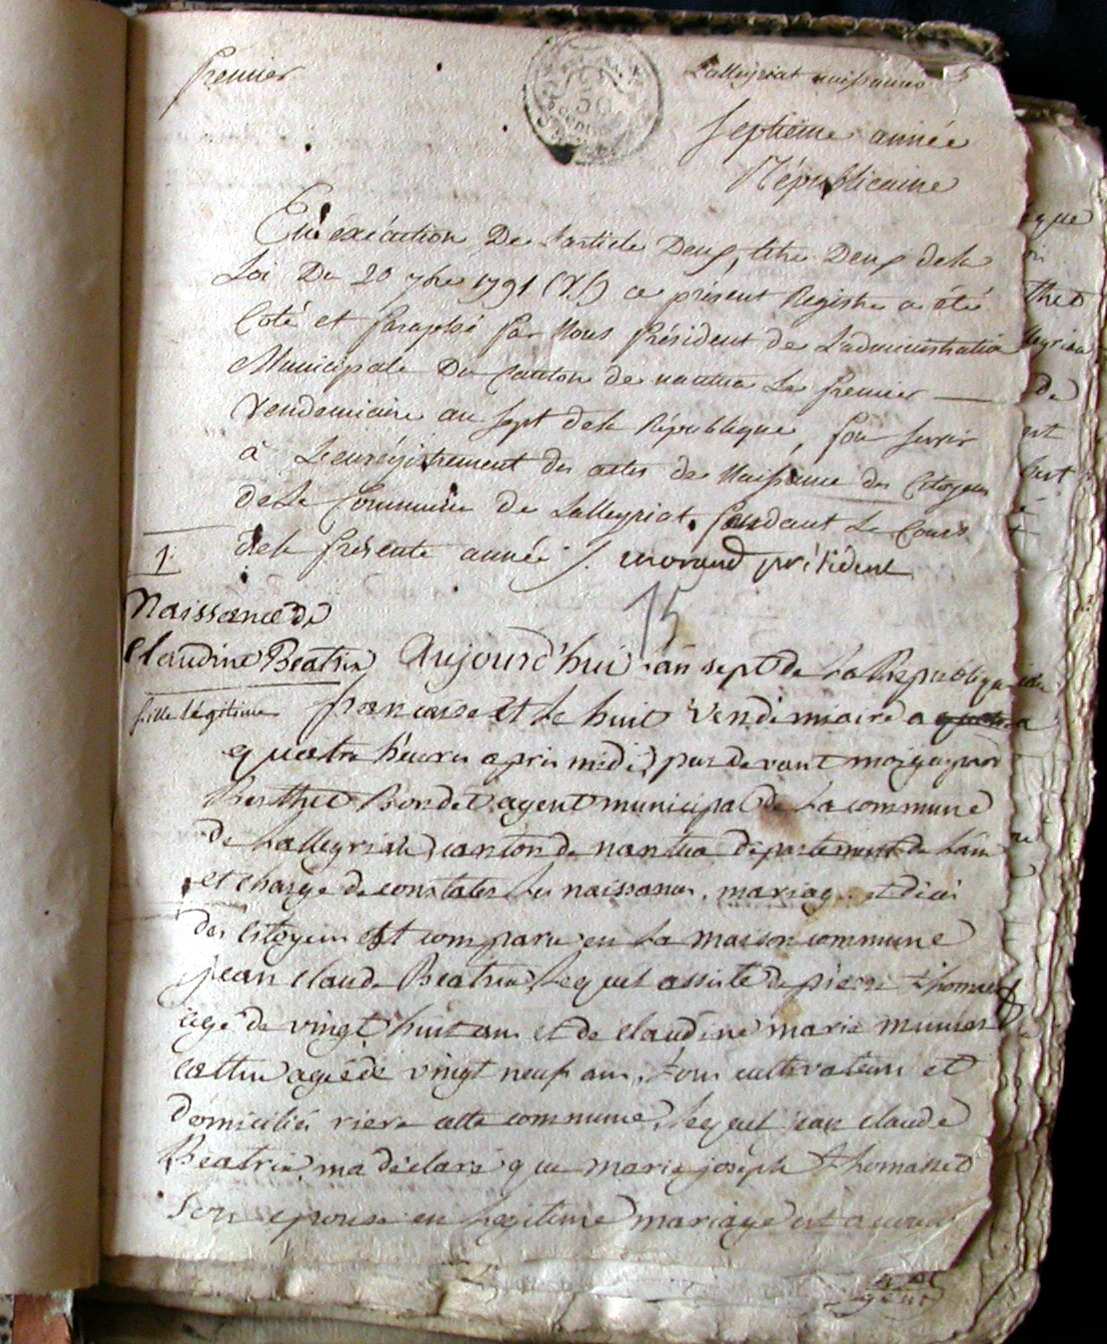 premier
Lalleyriat naissances
Septieme année
Républicaine
En éxécution De l'article Deux, titre Deux dela
Loi Du 20 7bre 1791 (V.S) ce présent Registre a été
Coté et paraphé par Nous Président de L'administration
Municipale Du Canton de nantua Le premier —
Vendemiaire an sept dela République, pour servir
à L'enrégistrement des actes de Naissance des Citoyens
de La Commune de Lalleyriat, pendant Le Cours
dela présente année ./. morand président
1
15
Naissance de
Claudine Beatrix
fille légitime
Aujourd'hui l'an sept de La Republique
francaise et Le huit Vendemiaire a
quatre heures apres midi, par devant moy
Berthet Bondet agent municipal de La commune
de Lalleyriat, canton de nantua departement de Lain
et charge de constater Les naissances, mariages et déces
des citoyens est comparu en La maison commune
jean claude Beatrix, Lequel assisté de pierre thomasset
agé de vingt huit ans et de claudine marie munier
cattin agée de vingt neuf ans, tous cultivateurs et
domiciliés riere cette commune, Lequel jean claude
Beatrix, ma déclaré que marie joseph thomasset
son epouse en Legitime mariage est accouché